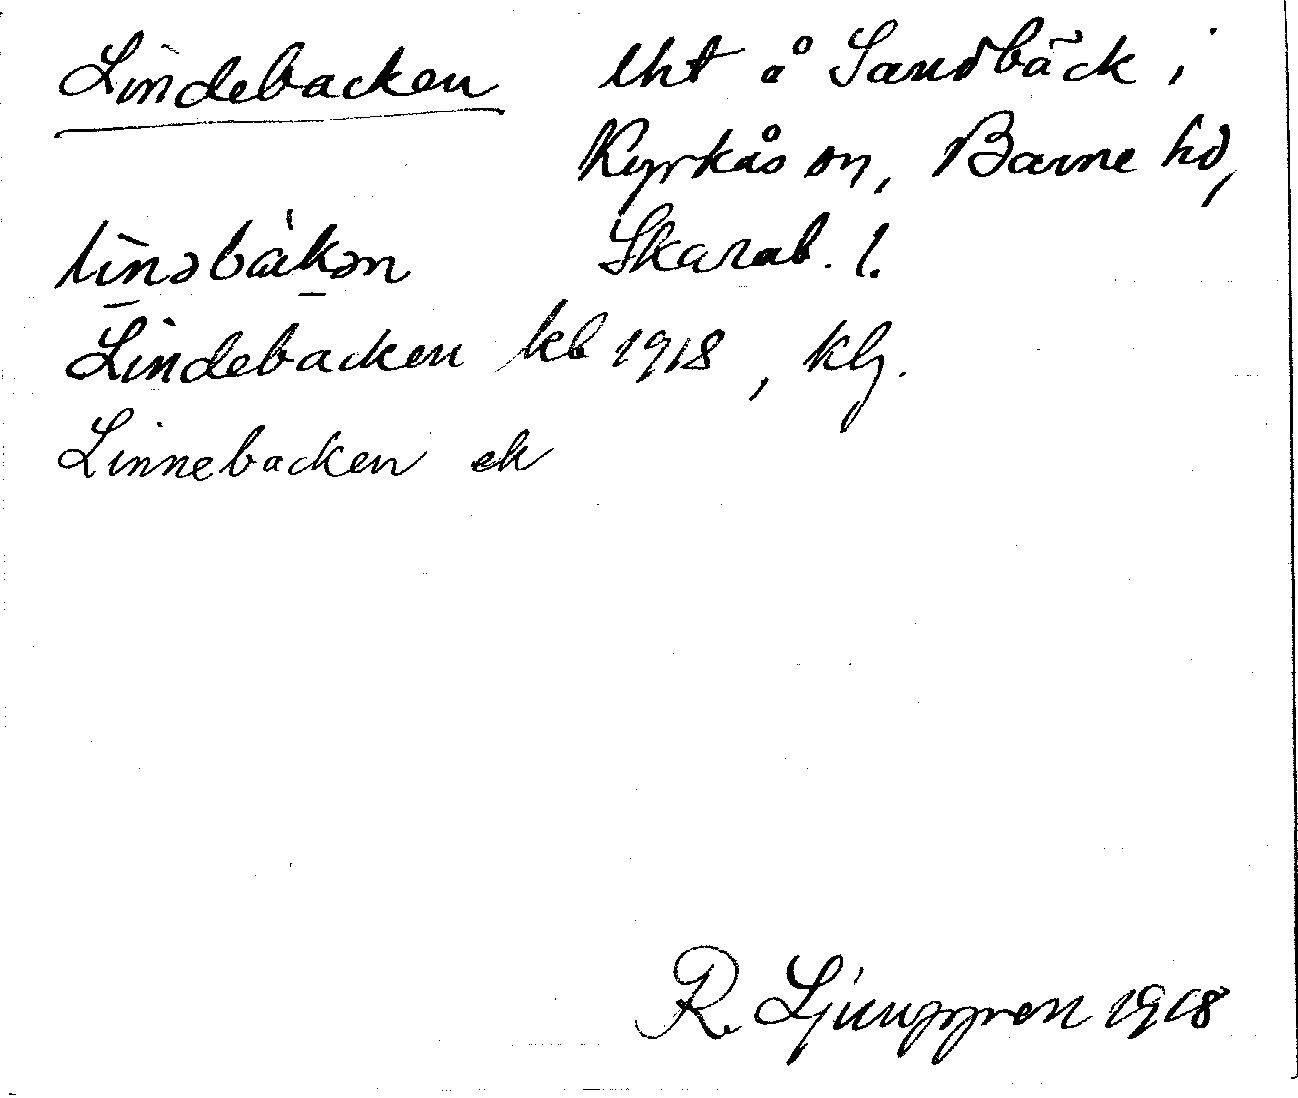 Lindebacken lht å Sandbäck i
Kyrkås sn, Barne hd,
Skarab. l.
lìnəbàkən
Lindebacken kb 1918, klg.
Linnebacken ek
R. Ljunggren 1918